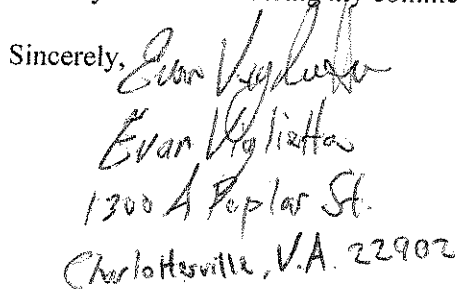 Sincerely, Evan Viglietta
Evan Viglietta
1300 A Poplar St.
Charlottesville, V.A. 22902